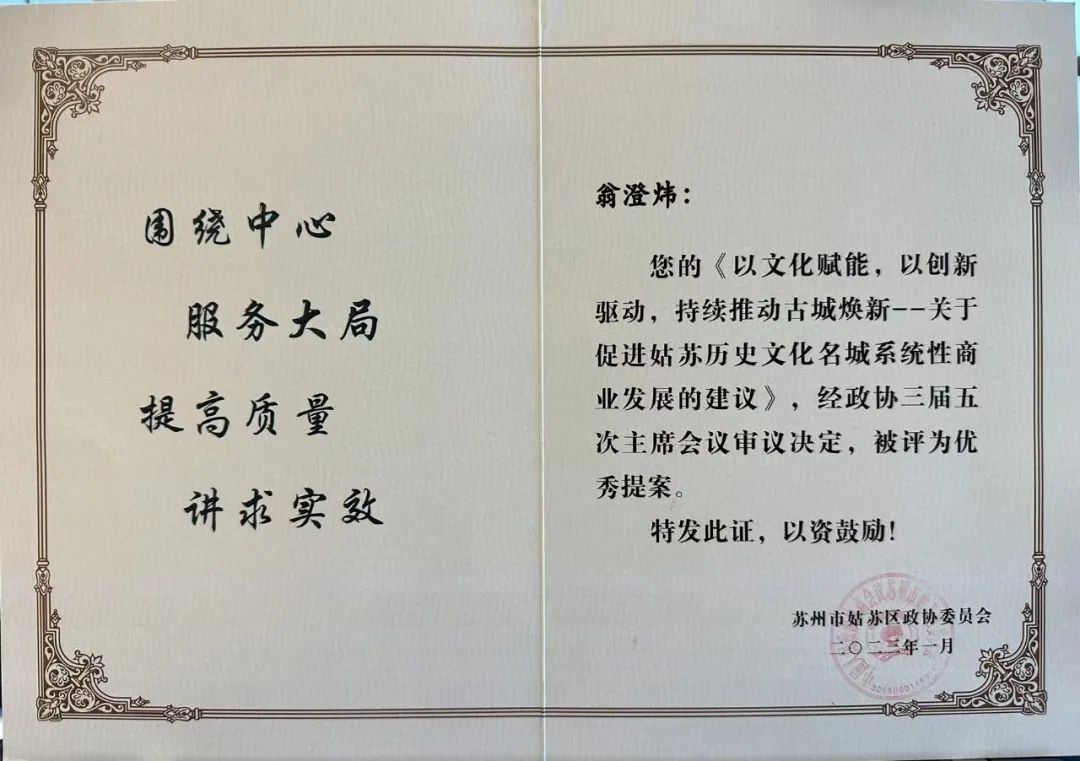 围绕中心
服务大局
提高质量
讲求实效
翁澄炜：
您的《以文化赋能，以创新
驱动，持续推动古城焕新--关于
促进姑苏历史文化名城系统性商
业发展的建议》，经政协三届五
次主席会议审议决定，被评为优
秀提案。
特发此证，以资鼓励！
苏州市姑苏区政协委员会
二〇二三年一月